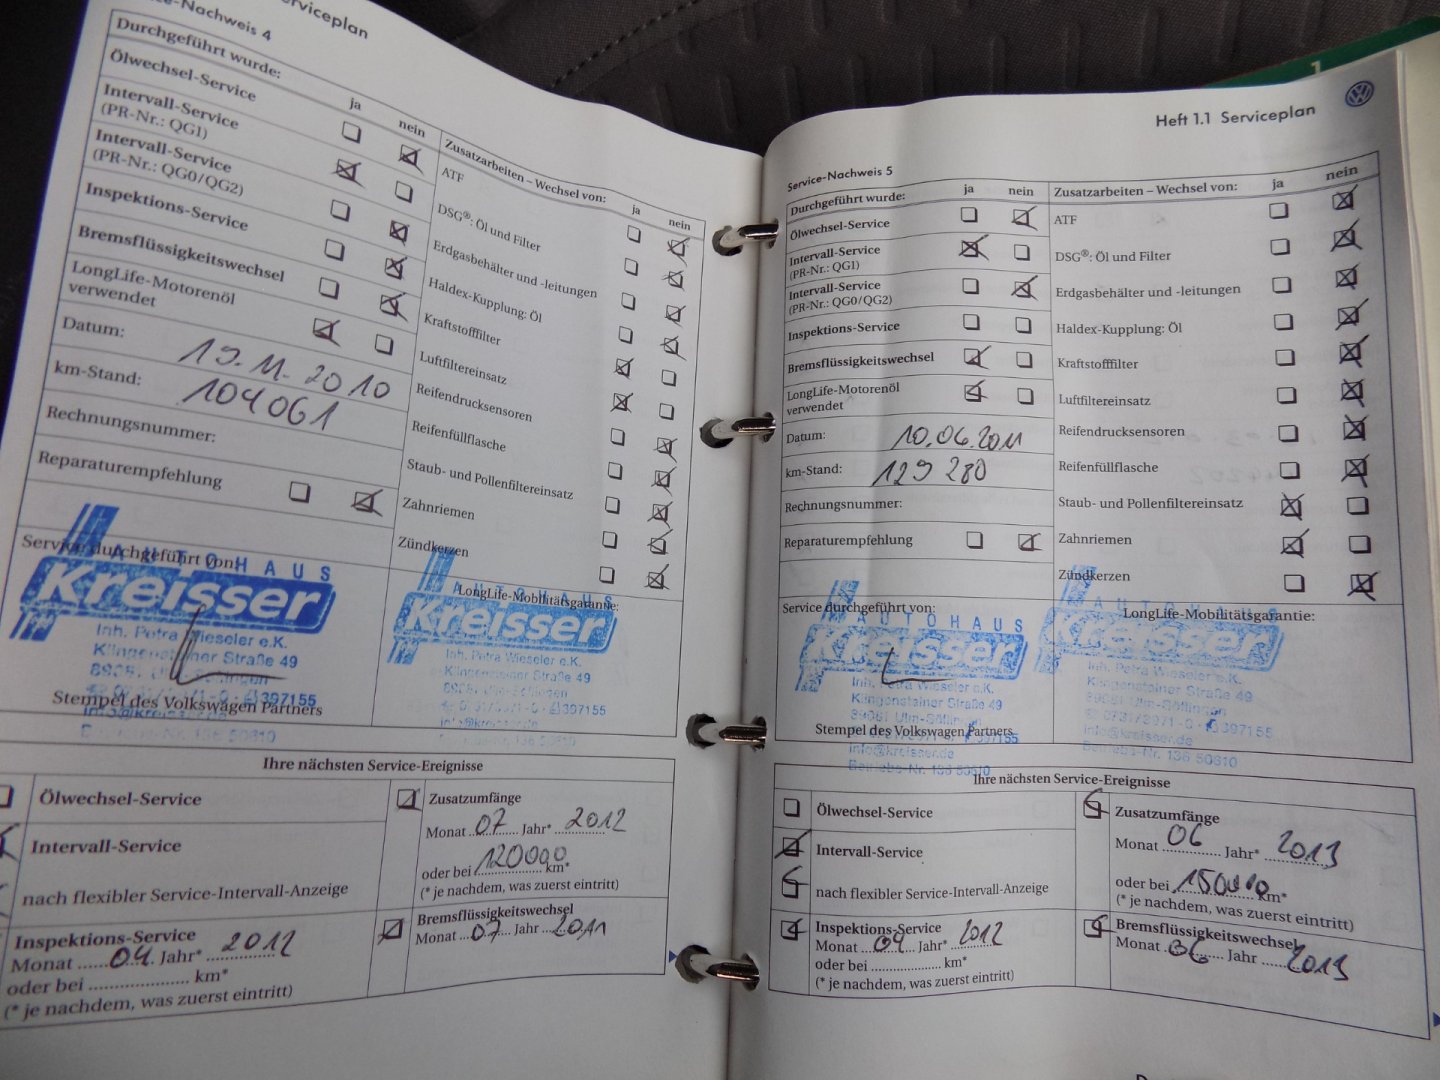 Serviceplan
Service-Nachweis 4
Durchgeführt wurde:
ja
nein
Ölwechsel-Service
Intervall-Service
(PR-Nr.: QG1)
Intervall-Service
(PR-Nr.: QG0/QG2)
Inspektions-Service
Bremsflüssigkeitswechsel
LongLife-Motorenöl
verwendet
Datum: 19.11.2010
km-Stand: 104061
Rechnungsnummer:
Reparaturempfehlung
Zusatzarbeiten – Wechsel von:
ja
nein
ATF
DSG®: Öl und Filter
Erdgasbehälter und -leitungen
Haldex-Kupplung: Öl
Kraftstofffilter
Luftfiltereinsatz
Reifendrucksensoren
Reifenfüllflasche
Staub- und Pollenfiltereinsatz
Zahnriemen
Zündkerzen
Service durchgeführt von:
AUTOHAUS
Kreisser
Inh. Petra Wieseler e.K.
Klingensteiner Straße 49
Stempel des Volkswagen Partners
LongLife-Mobilitätsgarantie:
AUTOHAUS
Kreisser
Inh. Petra Wieseler e.K.
Klingensteiner Straße 49
Ihre nächsten Service-Ereignisse
Ölwechsel-Service
Intervall-Service
nach flexibler Service-Intervall-Anzeige
Inspektions-Service
Monat 04 Jahr* 2012
oder bei .................... km*
(* je nachdem, was zuerst eintritt)
Zusatzumfänge
Monat 07 Jahr* 2012
oder bei 120000 km*
(* je nachdem, was zuerst eintritt)
Bremsflüssigkeitswechsel
Monat 07 Jahr 2011
Heft 1.1 Serviceplan
Service-Nachweis 5
Durchgeführt wurde:
ja
nein
Ölwechsel-Service
Intervall-Service
(PR-Nr.: QG1)
Intervall-Service
(PR-Nr.: QG0/QG2)
Inspektions-Service
Bremsflüssigkeitswechsel
LongLife-Motorenöl
verwendet
Datum: 10.06.2011
km-Stand: 129 280
Rechnungsnummer:
Reparaturempfehlung
Zusatzarbeiten – Wechsel von:
ja
nein
ATF
DSG®: Öl und Filter
Erdgasbehälter und -leitungen
Haldex-Kupplung: Öl
Kraftstofffilter
Luftfiltereinsatz
Reifendrucksensoren
Reifenfüllflasche
Staub- und Pollenfiltereinsatz
Zahnriemen
Zündkerzen
Service durchgeführt von:
AUTOHAUS
Kreisser
Inh. Petra Wieseler e.K.
Klingensteiner Straße 49
89081 Ulm-Söflingen
Stempel des Volkswagen Partners
info@kreisser.de
LongLife-Mobilitätsgarantie:
AUTOHAUS
Kreisser
Inh. Petra Wieseler e.K.
Klingensteiner Straße 49
89081 Ulm-Söflingen
info@kreisser.de
Betriebs-Nr. 136 50810
Ihre nächsten Service-Ereignisse
Ölwechsel-Service
Intervall-Service
nach flexibler Service-Intervall-Anzeige
Inspektions-Service
Monat 04 Jahr* 2012
oder bei .................... km*
(* je nachdem, was zuerst eintritt)
Zusatzumfänge
Monat 06 Jahr* 2013
oder bei 150000 km*
(* je nachdem, was zuerst eintritt)
Bremsflüssigkeitswechsel
Monat 06 Jahr 2013